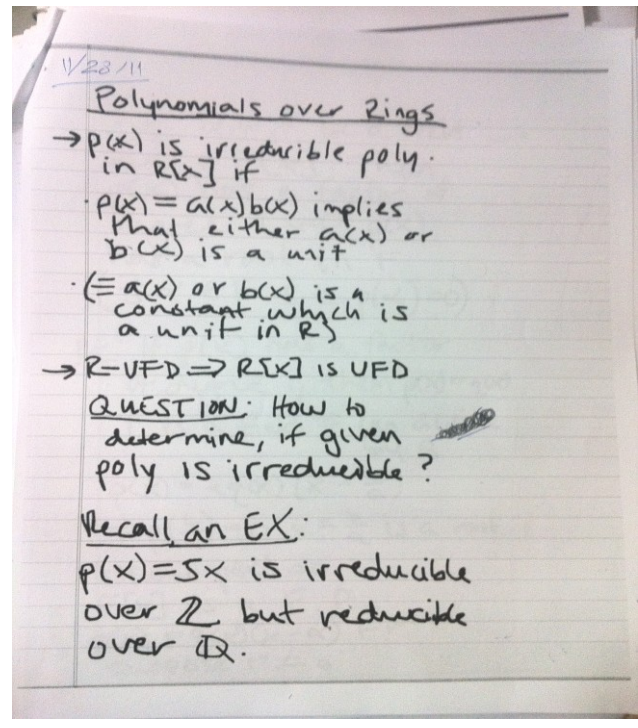 11/28/11
Polynomials over Rings
→ p(x) is irreducible poly.
in R[x] if
· p(x) = a(x)b(x) implies
that either a(x) or
b(x) is a unit
· (≡ a(x) or b(x) is a
constant which is
a unit in R)
→ R-UFD ⇒ R[x] is UFD
QUESTION: How to
determine, if given
poly is irreducible?
Recall an EX:
p(x)=5x is irreducible
over ℤ but reducible
over ℚ.